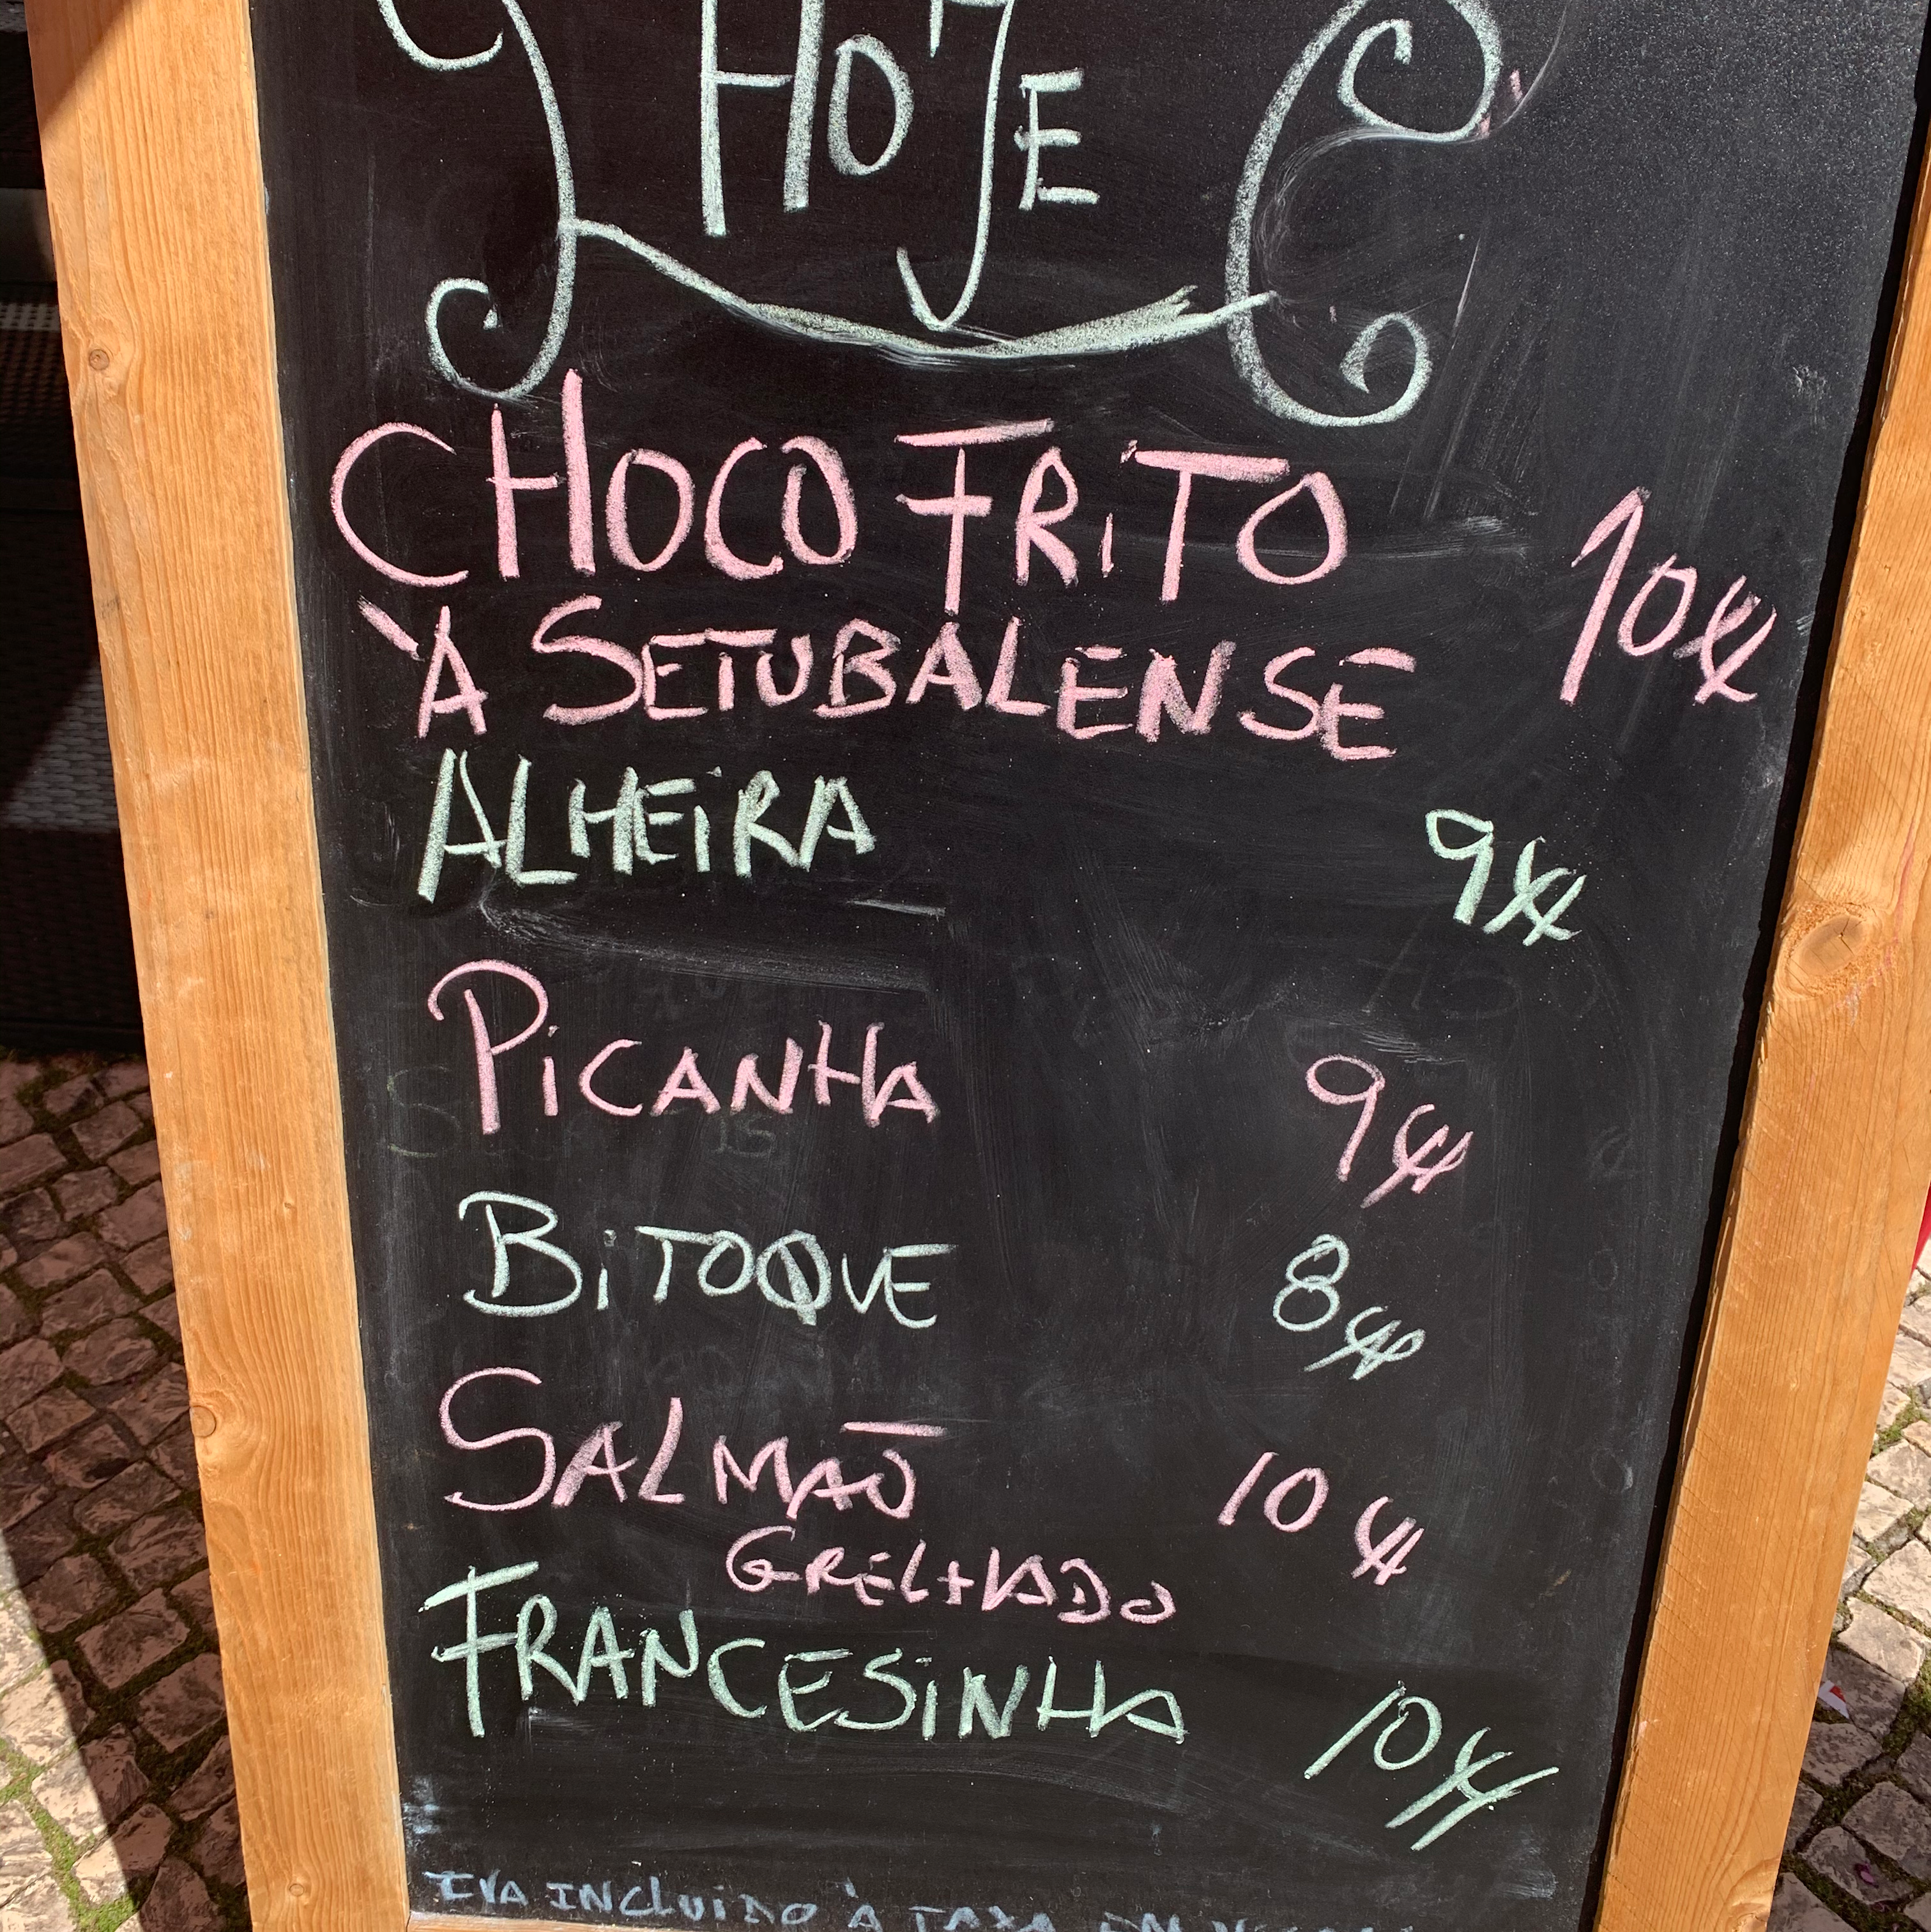 HOJE
CHOCO FRITO
À SETUBALENSE 10€
ALHEIRA 9€
PICANHA 9€
BITOQUE 8€
SALMÃO 10€
GRELHADO
FRANCESINHA 10€
IVA INCLUIDO À TAXA EM